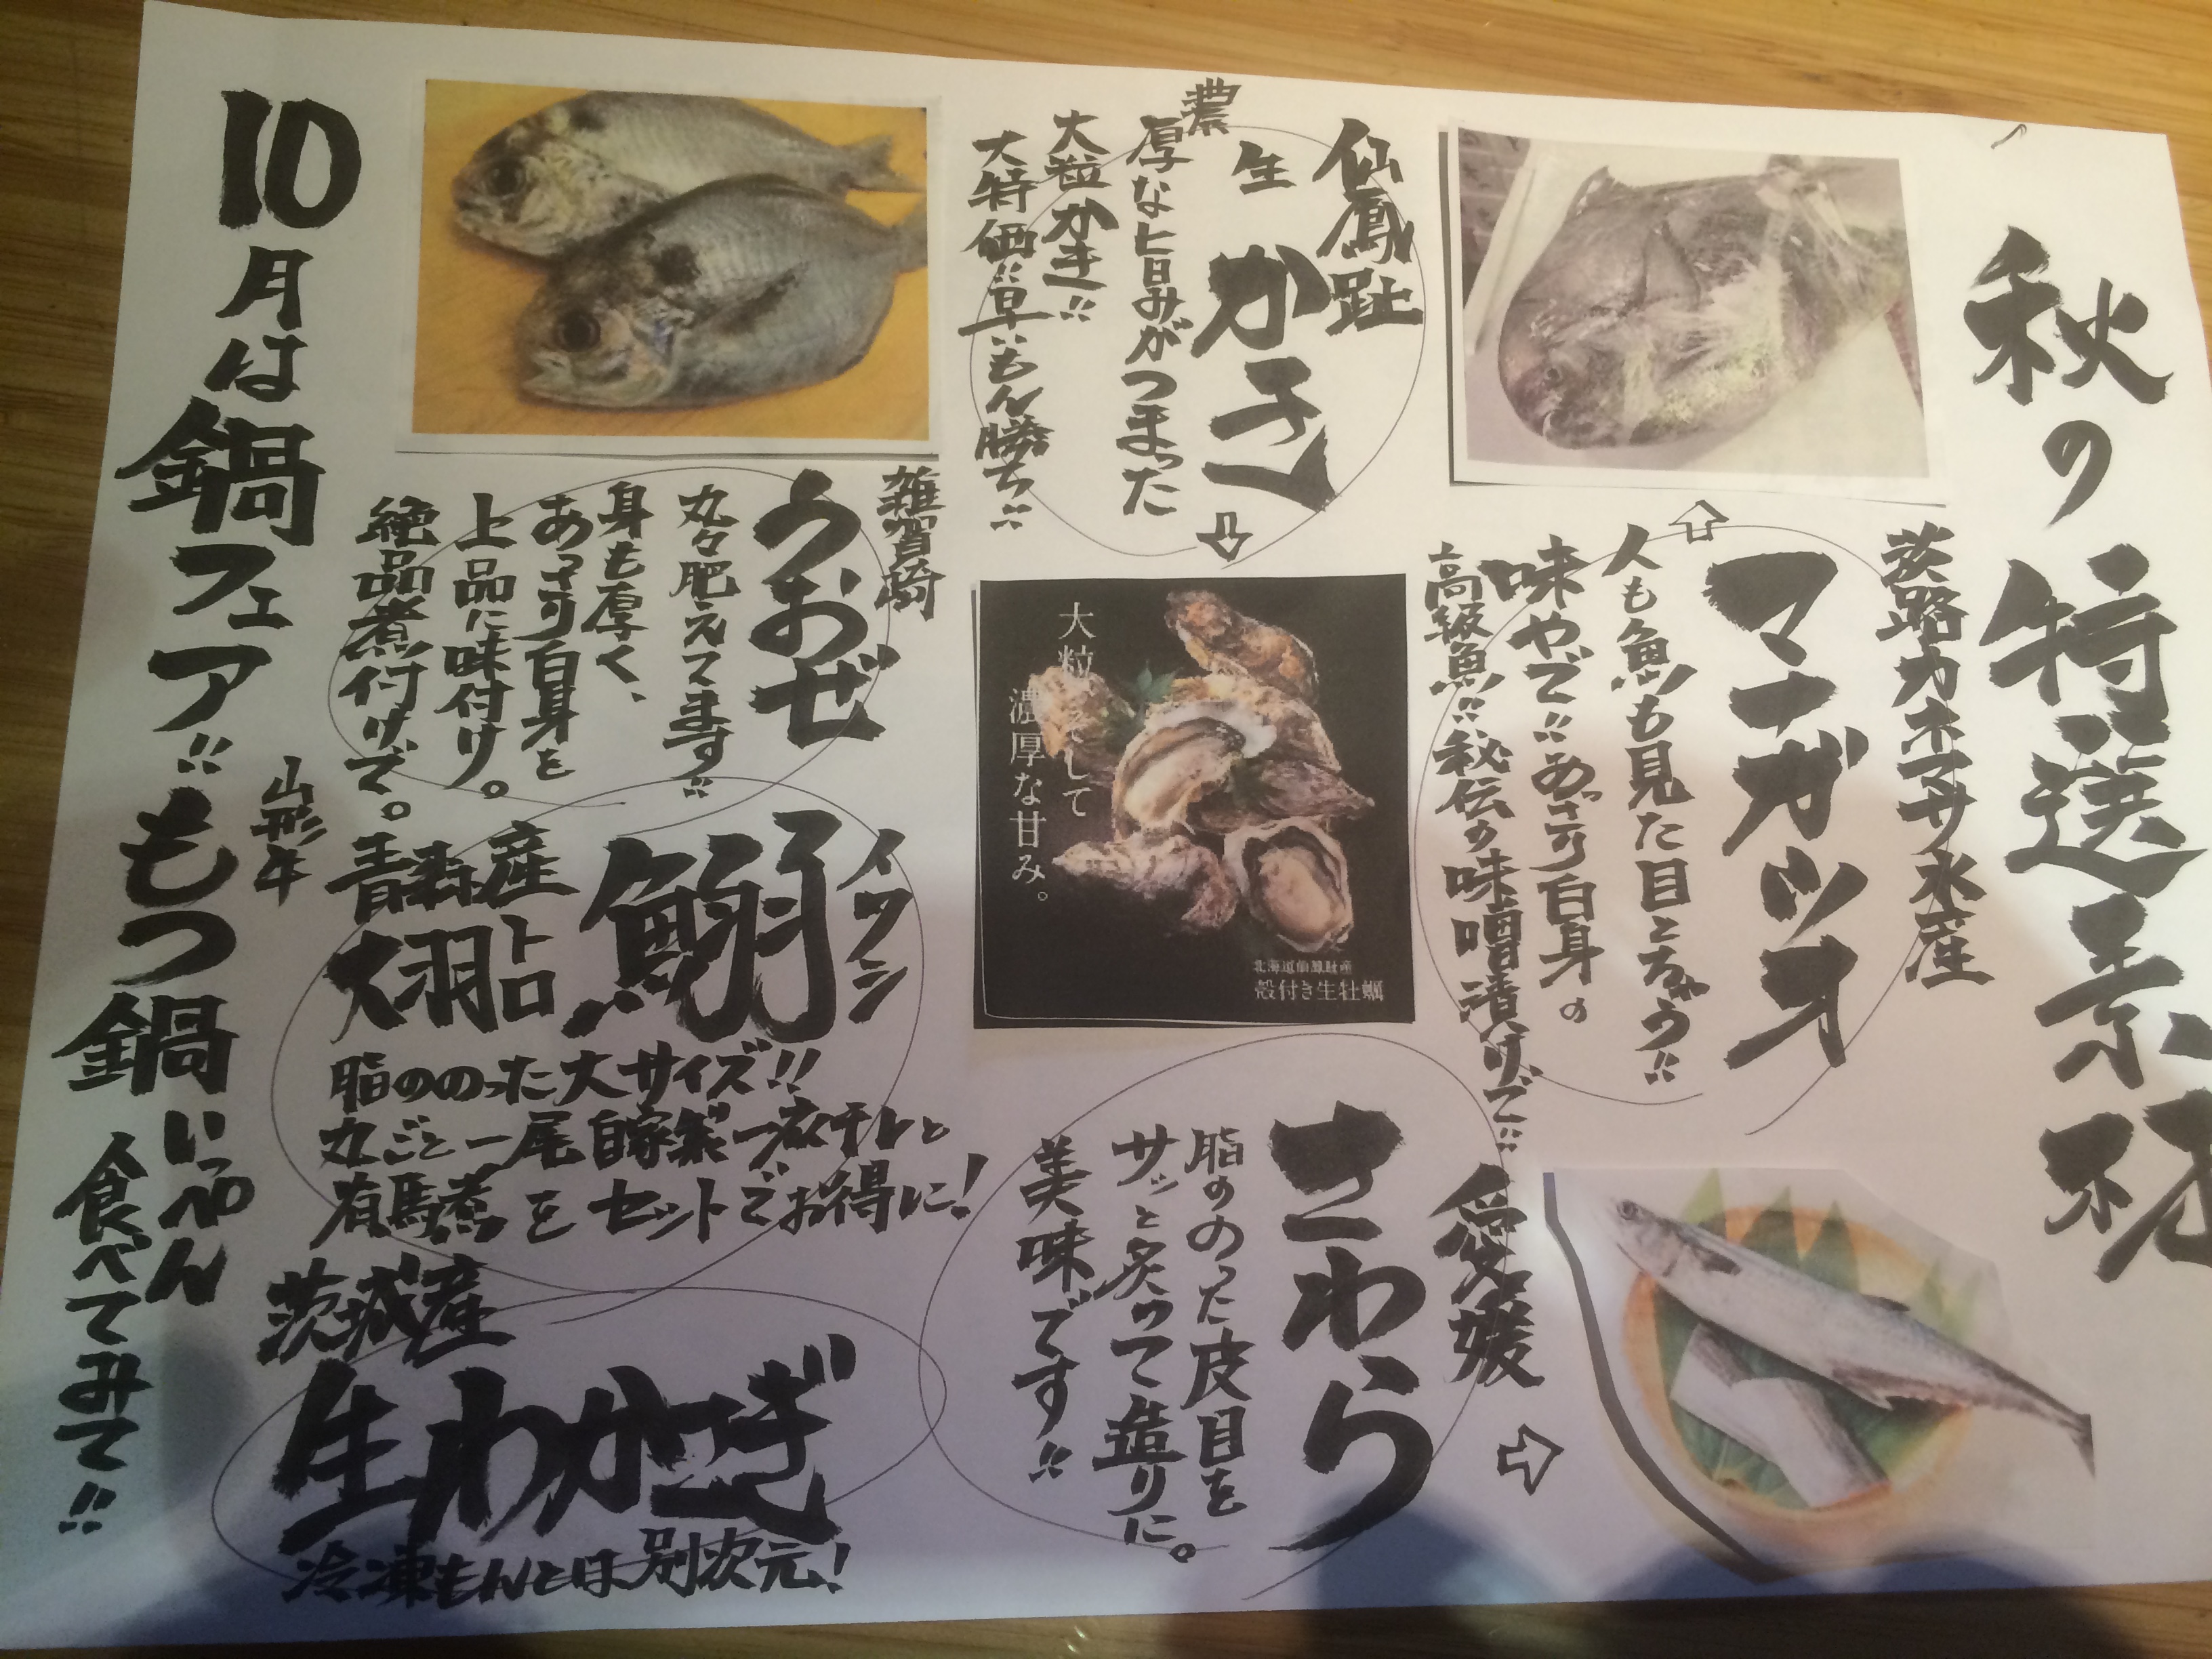 秋の特選素材
茨路カネマサ水産
マナガツオ
人も魚も見た目とちゃう!!
味やで!!あっさり白身の
高級魚!!秘伝の味噌漬けで!!
仙鳳趾
生かき
濃厚な旨みがつまった
大粒かき!!
大特価!!早いもん勝ち!!
大粒にして
濃厚な甘み。
北海道仙鳳趾産
殻付き生牡蠣
愛媛
さわら
脂ののった皮目を
サッと炙って造りに。
美味です!!
雑賀崎
うおぜ
丸々肥えてます!!
身も厚く、
あっさり白身を
上品に味付け。
絶品煮付けで。
イワシ
鰯
青森産
大羽トロ
脂ののった大サイズ!!
丸ごと一尾自家製一夜干しと
有馬煮をセットでお得に!
茨城産
生わかさぎ
冷凍もんとは別次元!
10月は鍋フェア!!
山形牛
もつ鍋いっぺん
食べてみて!!